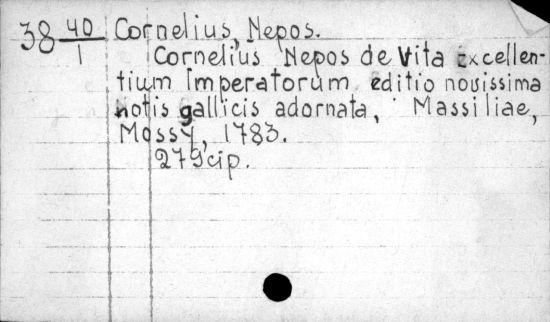 38 40/1 Cornelius, Nepos.
Cornelius Nepos de Vita Excellen-
tium Imperatorum editio novissima
notis gallicis adornata, Massiliae,
Mossy, 1783.
279 cip.